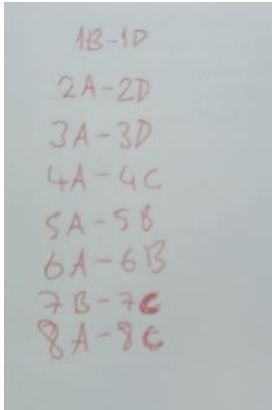 1B-1D
2A-2D
3A-3D
4A-4C
5A-5B
6A-6B
7B-7C
8A-8C